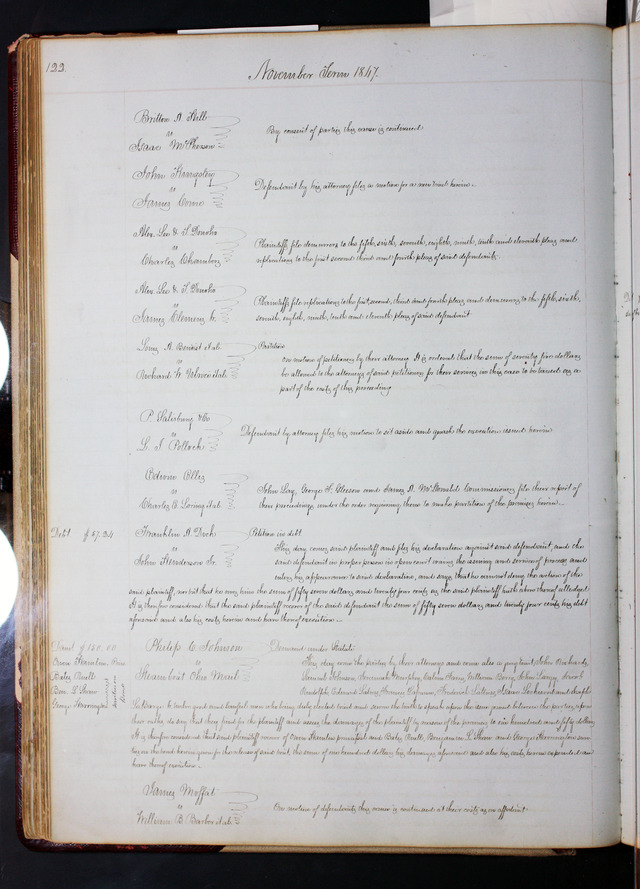 122.
November Term 1847.
Britton A. Hill
vs
Isaac McPherson
By consent of parties this cause is continued
John
vs
James
Defendant by his attorney files a motion for a new trial herein.
Alex. Lee & T.
vs
Charles Chambers
Plaintiffs file demurrers to the fifth, sixth, seventh, eighth, ninth, tenth and eleventh pleas and
replications to the first second third and fourth pleas of said defendant.
Alex. Lee & T.
vs
James Clemens Jr.
Plaintiffs file replications to the first, second, third and fourth pleas and demurrers to the fifth, sixth,
seventh, eighth, ninth, tenth and eleventh pleas of said defendant
Louis A. Benoist et al.
vs
et al.
Partition
On motion of petitioners by their attorney It is ordered that the sum of seventy five dollars
be allowed to the attorneys of said petitioners for their services in this case to be taxed as a
part of the costs of this proceeding
P. Salisbury & Co
vs
L. S. Pollock
Defendant by attorney files his motion to set aside and quash the execution issued herein
Edwne
vs
Charles
et al.
John Lay, George F. and James A. McDonald Commissioners file their report of
their proceedings under the order requiring them to make partition of the premises herein.
Debt $57.24
Franklin A. Dick
vs
John Henderson Sr.
Petition in debt
This day comes said plaintiff and files his declaration against said defendant, and the
said defendant in proper person in open court waives the issuing and service of process and
enters his appearance to said declaration, and says that he cannot deny the action of the
said plaintiff, nor but that he owes him the sum of fifty seven dollars and twenty four cents as the said plaintiff hath above thereof alledged
It is therefore considered that the said plaintiff recover of the said defendant the sum of fifty seven dollars and twenty four cents his debt
aforesaid and also his costs herein and have thereof execution.
Dam'd $160.00
Owen
Bates
Ben. L.
George
Philip C. Johnson
vs
Steamboat Ohio Mail
Demand under Statute
This day come the parties by their attorneys and come also a jury to wit John Richards,
Samuel Johnson, Jeremiah Murphy, William Berry, John Larzy, Jacob
Rudolph, Edmund Francis Frederick Isaac Lockwood and
good and lawful men who being duly elected tried and sworn the truth to speak upon the issue joined between the parties upon
their oaths, do say that they find for the plaintiff and assess the damages of the plaintiff by reason of the premises to one hundred and fifty dollars
It is therefore considered that said plaintiff recover of Owen principal and Bates Benjamin L. and George
in the bond herein given for the release of said boat the sum of one hundred dollars his damages aforesaid and also his costs herein expended and
have thereof execution.
James Moffat
vs
William B. Barber et al.
On motion of defendants this cause is continued at their costs upon affidavit